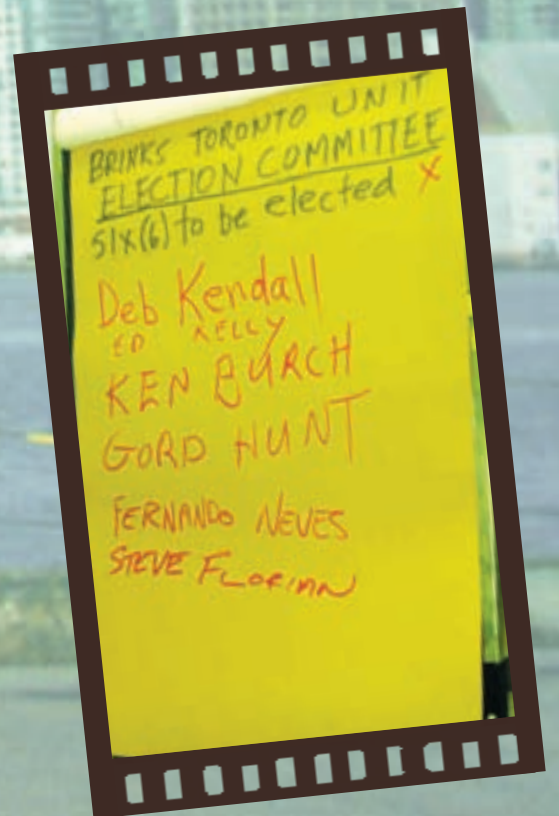 BRINKS TORONTO UNIT
ELECTION COMMITTEE
SIX(6) to be elected X
Deb Kendall
ED KELLY
KEN BURCH
GORD HUNT
FERNANDO NEVES
STEVE FLORIAN